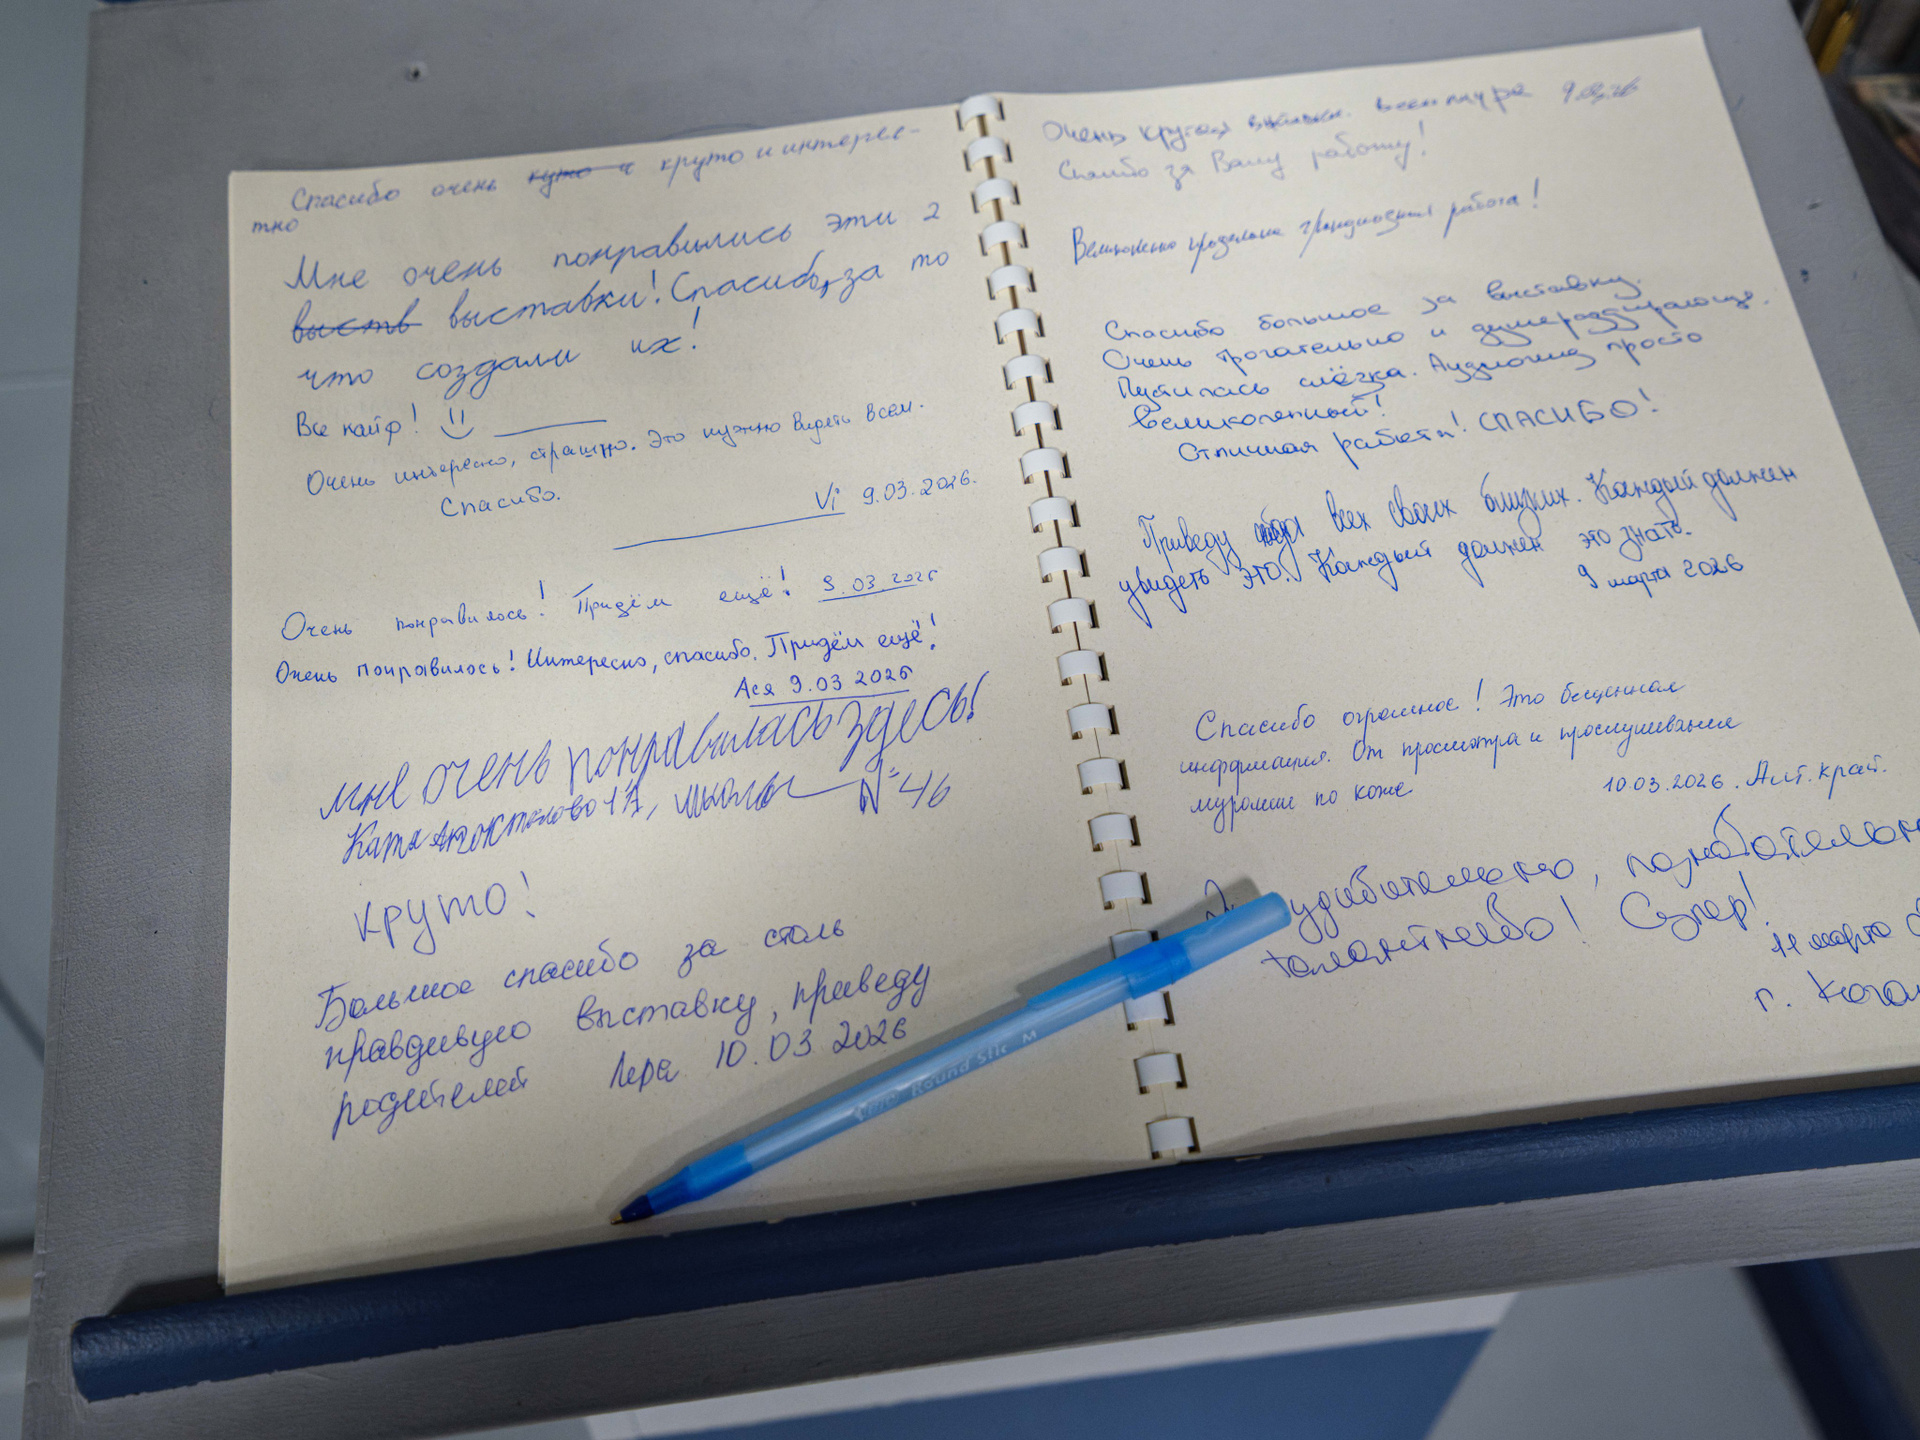 Спасибо очень круто и интерес-
тно
Мне очень понравились эти 2
выств выставки! Спасибо, за то
что создали их!
Все кайф!
Очень интересно, страшно. Это нужно видеть всем.
Спасибо.
Vi 9.03.2026.
Очень понравилось! Придём ещё! 9.03.2026
Очень понравилось! Интересно, спасибо. Придём ещё!
Ася 9.03 2026
мне очень понравилась здесь!
Катя 1А, школа № 46
круто!
Большое спасибо за столь
правдивую выставку, приведу
родителей Лера 10.03 2026
Round Stic M
Очень крутая 9.03.26
Спасибо за Вашу работу!
грандиозная работа!
Спасибо большое за выставку.
Очень трогательно и душераздирающе.
Пустилась слёзка. Аудиогид просто
великолепный!
Отличная работа! СПАСИБО!
Приведу всех своих близких. Каждый должен
увидеть это. Каждый должен это знать.
9 марта 2026
Спасибо огромное! Это бесценная
информация. От просмотра и прослушивания
мурашки по коже
10.03.2026. Алт. край.
удивительно, познавательно
талантливо! Супер!
11 марта
г.